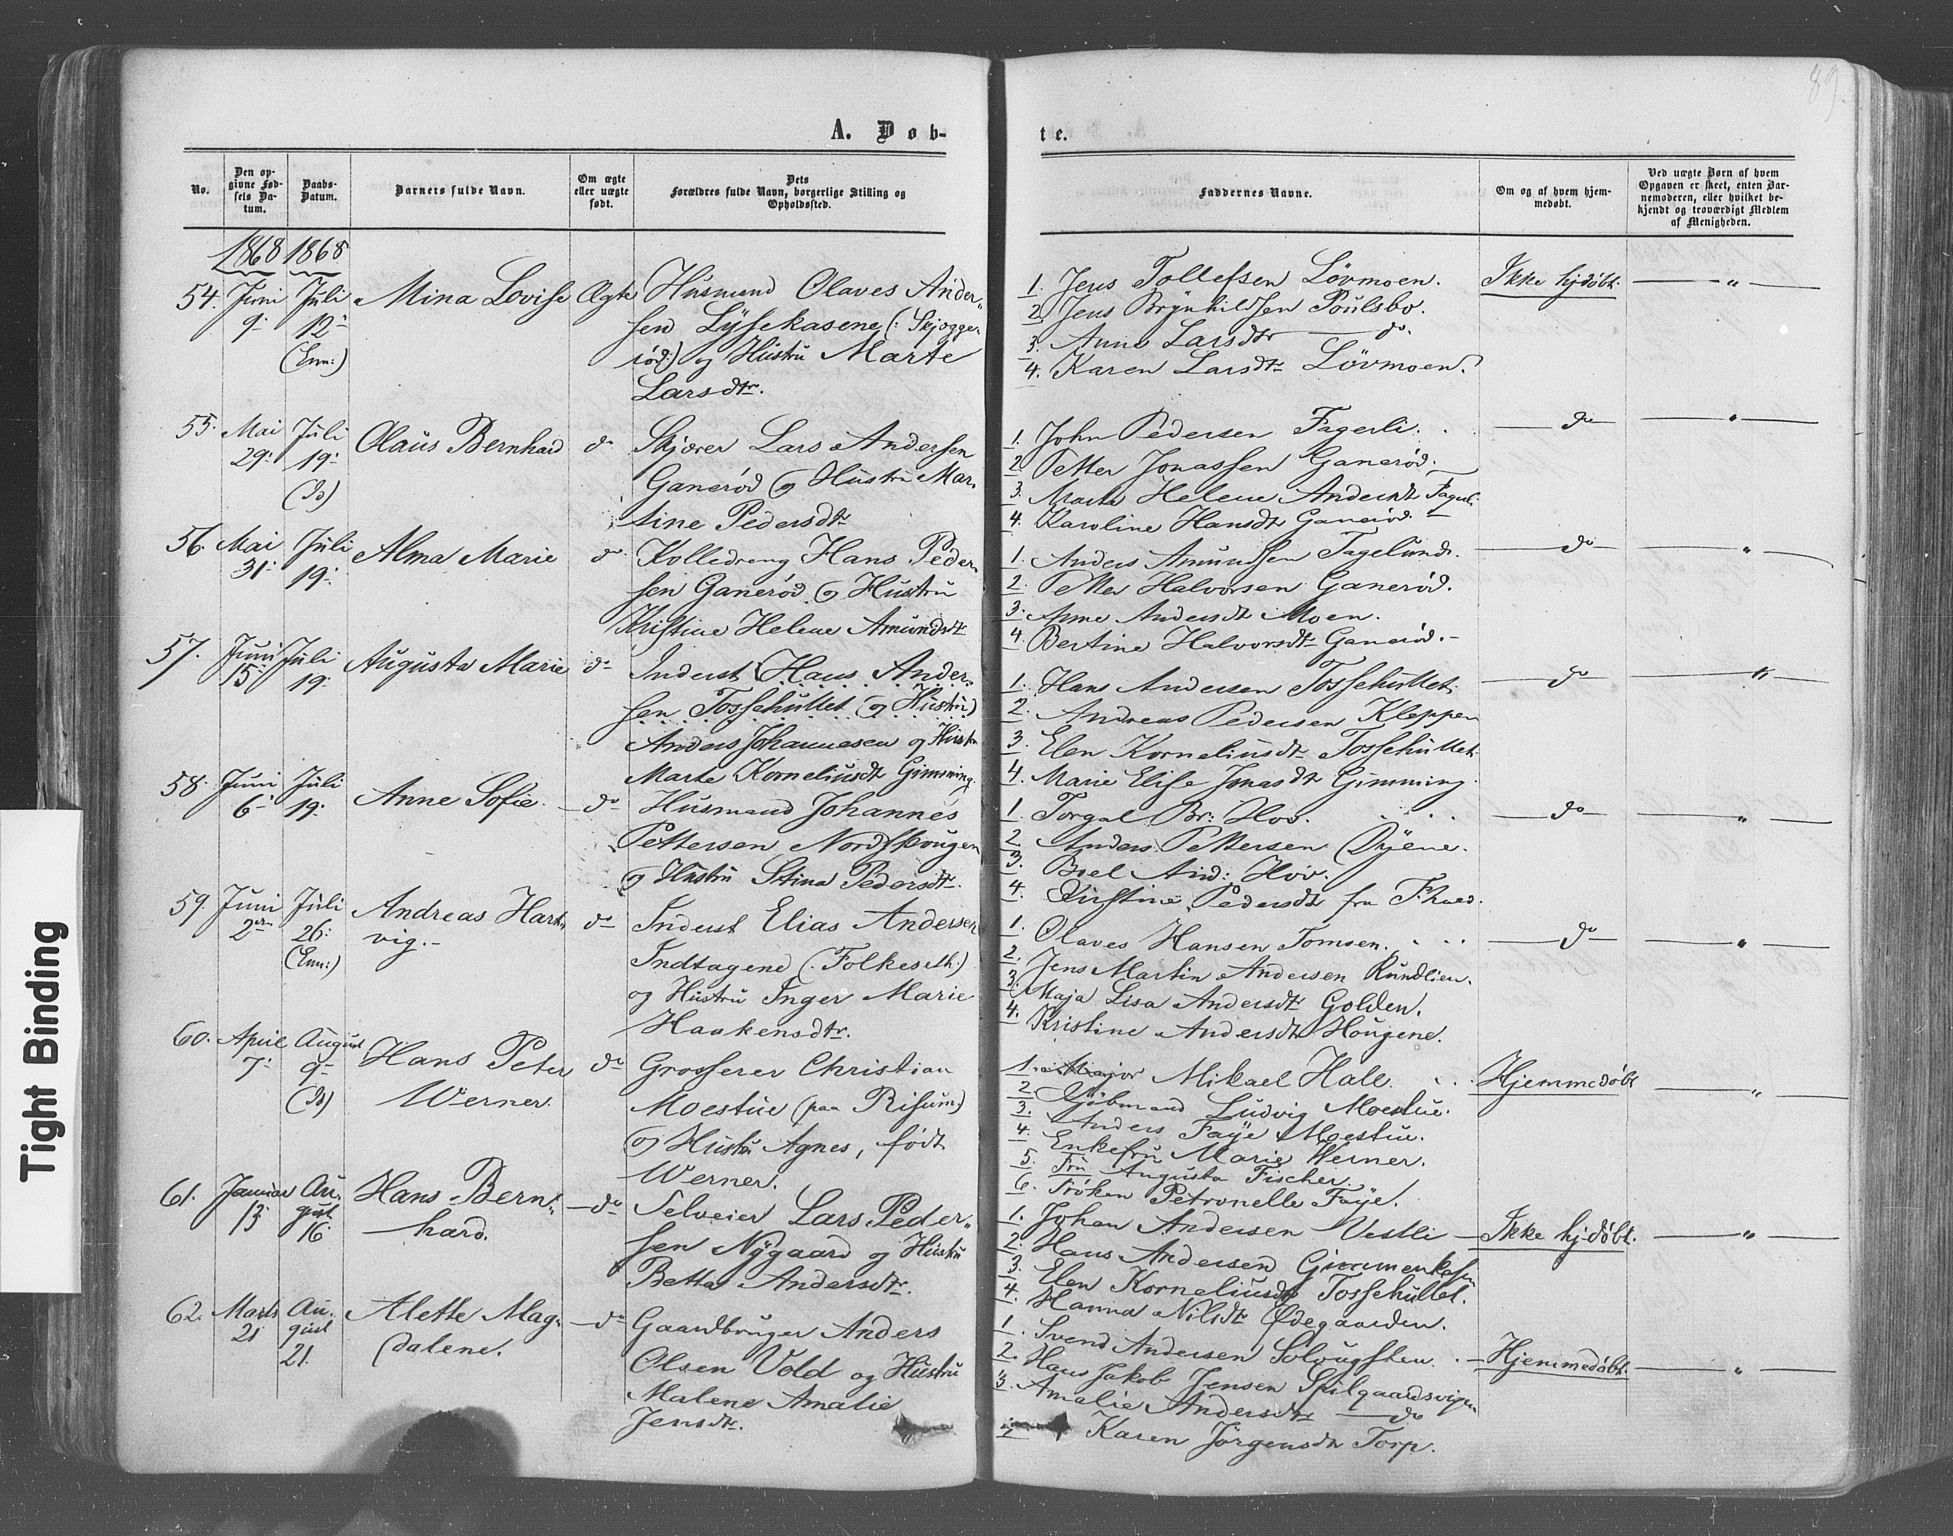 89.
A. Døb-
te.
No.
Den opgivne Fødsels Datum.
Daabs-Datum.
Barnets fulde Navn.
Om ægte eller uægte født.
Dets Forældres fulde Navn, borgerlige Stilling og Opholdssted.
Faddernes Navne.
Om og af hvem hjemmedøbt.
Ved uægte Børn af hvem Opgaven er skeet, enten Barnemoderen, eller hvilket bekjendt og troværdigt Medlem af Menigheden.
1868 1868
54. Juni 9. Juli 12. (Enn:) Mina Lovise Ægte
Husmand Olaves Ander-
sen Lysekasene (: Skjogge-
rød:) og Hustru Marte
Larsdtr.
1. Jens Tollefsen Lövmoen.
2. Jens Brynhildsen Poulsbo.
3. Anne Larsdtr do.
4. Karen Larsdtr Lövmoen.
Ikke hjdøbt. "
55. Mai 29. Juli 19. (Do) Olaus Bernhard do
Skjærer Lars Andersen
Ganerød og Hustru Mar-
tine Pedersdtr
1. John Pedersen Fagerli.
2. Petter Jonassen Ganerød.
3. Marte Helene Andersdt Fagerl.
4. Karoline Hansdt Ganerød.
do "
56. Mai 31. Juli 19. Alma Marie do
Kolledreng Hans Peder-
sen Ganerød og Hustru
Kristine Helene Amundsdtr
1. Anders Amundsen Fagelund.
2. Petter Halvorsen Ganerød.
3. Anne Andersdt Moen.
4. Bertine Halvorsdtr Ganerød.
do "
57. Juni 15. Juli 19. Augusta Marie do
Inderst (Hans Ander-
sen Tossehullet og Hustru)
Anders Johannesen og Hustru
Marte Korneliusdt Gimming
1. Hans Andersen Tossehullet.
2. Andreas Pedersen Kleppen
3. Elen Korneliusdt Tossehullet.
4. Marie Elise Jonasdt Gimming.
do "
58. Juni 6. Juli 19. Anne Sofie. do
Husmand Johannes
Pettersen Nordskougen
og Hustru Stina Pedersdtr.
1. Torgal Br: Hov.
2. Anders Pettersen Öyene.
3. Boel And: Hov.
4. Kirstine Pedersdt fra
do "
59. Juni 2den Juli 26. (Enn:) Andreas Hart-
vig. do
Inderst Elias Andersen
Indtagene (: Folkeseth:)
og Hustru Inger Marie
Haakensdtr.
1. Olaves Hansen Tomsen.
2. Jens Martin Andersen Rundlien.
3. Maja Lisa Andersdtr Golden.
4. Kristine Andersdt Hougene.
do "
60. April 7. August 9. (Do) Hans Peter
Werner. do
Grosserer Christian
Moestue (paa Risum)
og Hustru Agnes, født
Werner.
1. Major Mikael Hale.
2. Kjøbmand Ludvig Moestue.
3. Anders Faye Moestue.
4. Enkefru Marie Werner.
5. Fru Augusta Fischer.
6. Fröken Petronelle Faye.
Hjemmedøbt "
61. Januar 13 August 16. Hans Bern-
hard. do
Selveier Lars Peder-
sen Nygaard og Hustru
Betta Andersdtr.
1. Johan Andersen Vestli
2. Hans Andersen Gimmenkasen
3. Elen Korneliusdt Tossehullet.
4. Hanna Nilsdtr Ödegaarden.
Ikke hjdøbt. "
62. Marts 21 August 21. Alette Mag-
dalene. do
Gaardbruger Anders
Olsen Vold og Hustru
Malene Amalie
Jensdtr.
1. Svend Andersen
2. Hans Jakob Jensen Spilgaardsvigen
3. Amalie Andersdtr do
Karen Jörgensdt Torp.
Hjemmedøbt. "
Tight Binding